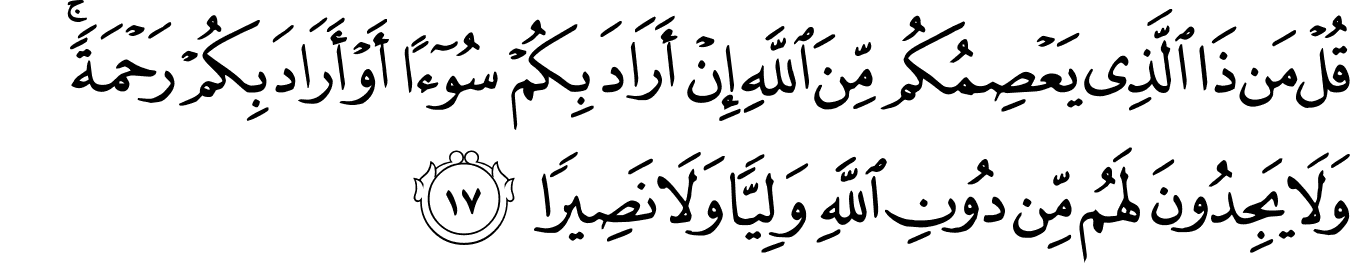 قُلْ مَن ذَا ٱلَّذِى يَعْصِمُكُم مِّنَ ٱللَّهِ إِنْ أَرَادَ بِكُمْ سُوٓءًا أَوْ أَرَادَ بِكُمْ رَحْمَةً ۚ
وَلَا يَجِدُونَ لَهُم مِّن دُونِ ٱللَّهِ وَلِيًّا وَلَا نَصِيرًا ١٧